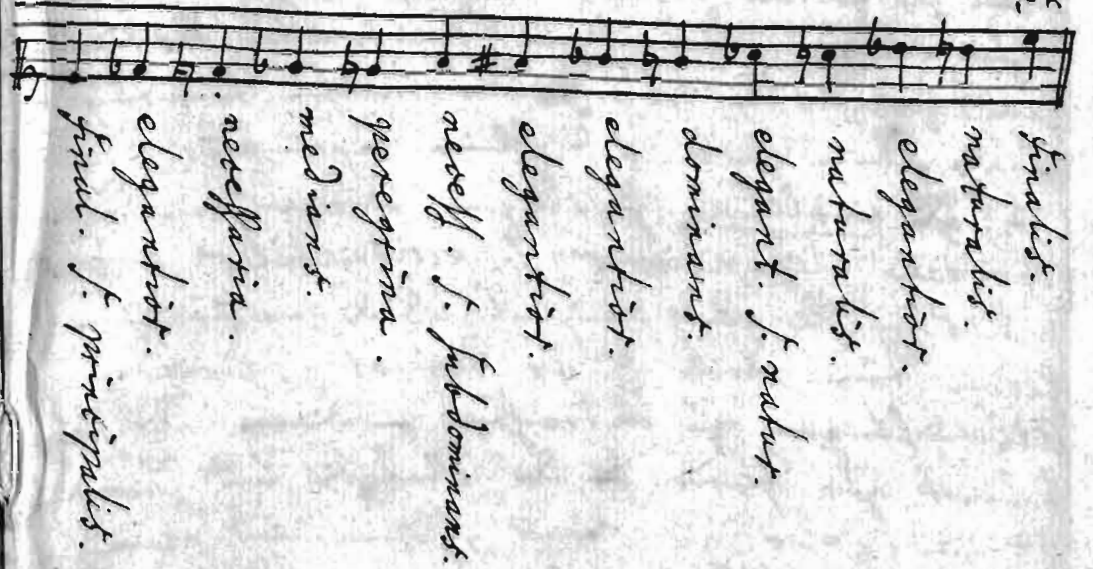 final. s. principalis.
elegantior.
necessaria.
medians.
peregrina.
necess. s. subdominans.
elegantior.
elegantior.
dominans.
elegant. s. natur.
naturalis.
elegantior.
naturalis.
finalis.